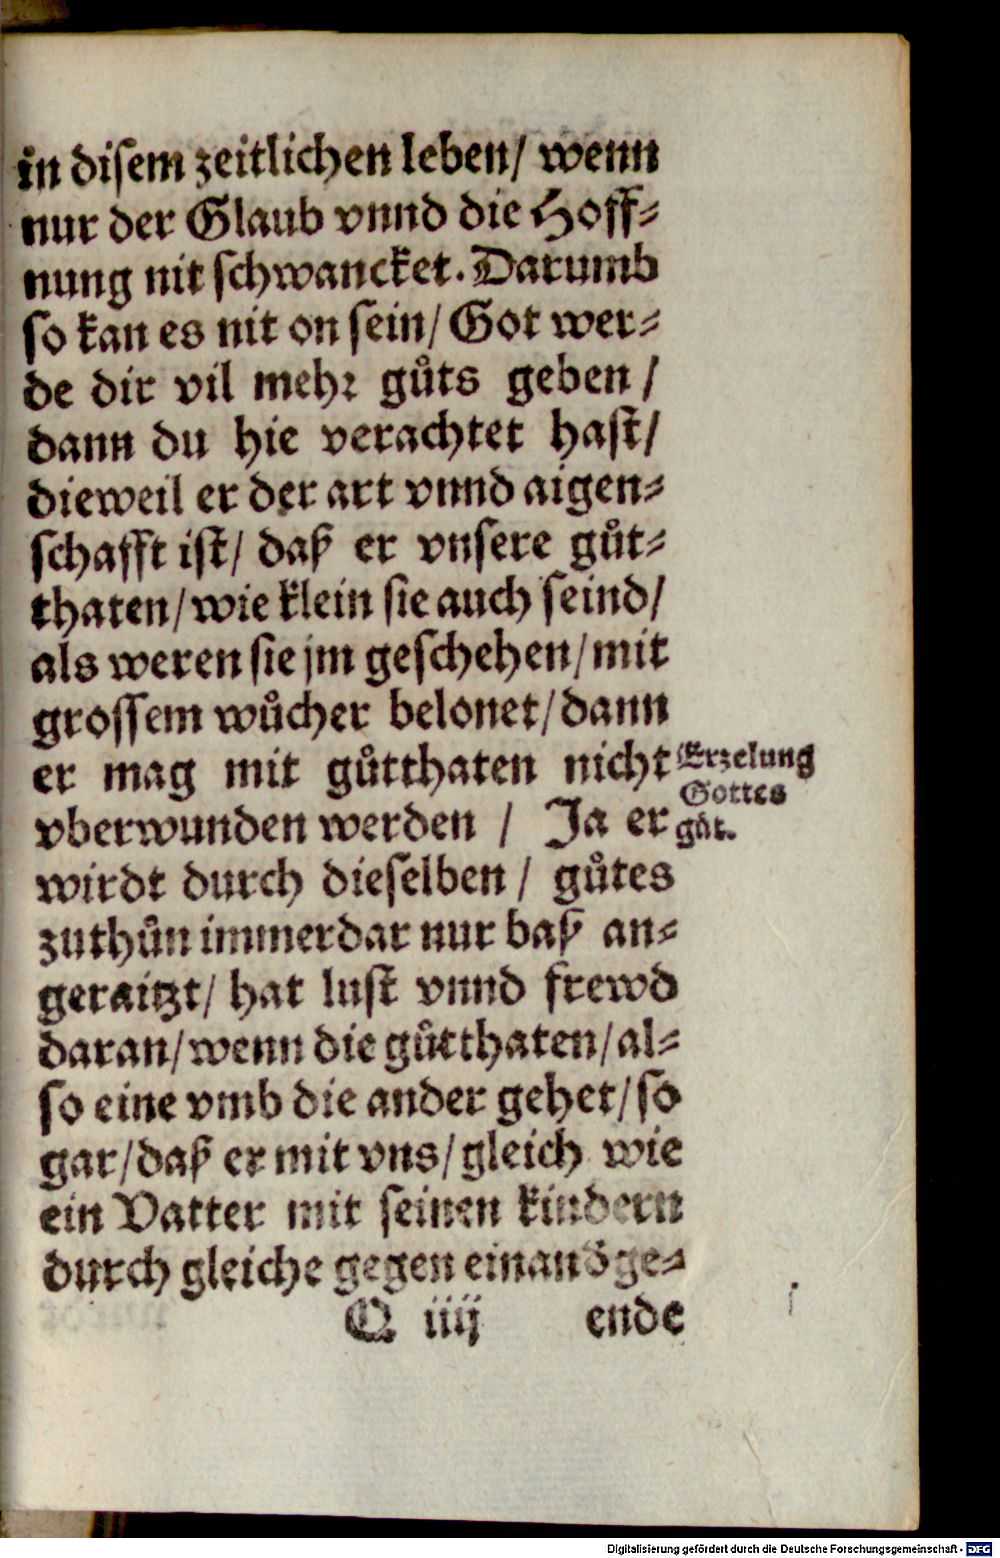 in disem zeitlichen leben/ wenn
nur der Glaub vnnd die Hoff⸗
nung nit schwancket. Darumb
so kan es nit on sein/ Got wer⸗
de dir vil mehr gůts geben /
dann du hie verachtet hast/
dieweil er der art vnnd aigen⸗
schafft ist/ daß er vnsere gůt⸗
thaten/ wie klein sie auch seind/
als weren sie jm geschehen/ mit
grossem wůcher belonet/ dann
er mag mit gůtthaten nicht
vberwunden werden / Ja er
wirdt durch dieselben / gůtes
zuthůn immerdar nur baß an⸗
geraitzt/ hat lust vnnd frewd
daran/ wenn die gůtthaten/ al⸗
so eine vmb die ander gehet/ so
gar/ daß er mit vns/ gleich wie
ein Vatter mit seinen kindern
durch gleiche gegen einandʾ ge⸗
Q iiij ende
Erzelung
Gottes
gůt.
Digitalisierung gefördert durch die Deutsche Forschungsgemeinschaft - DFG